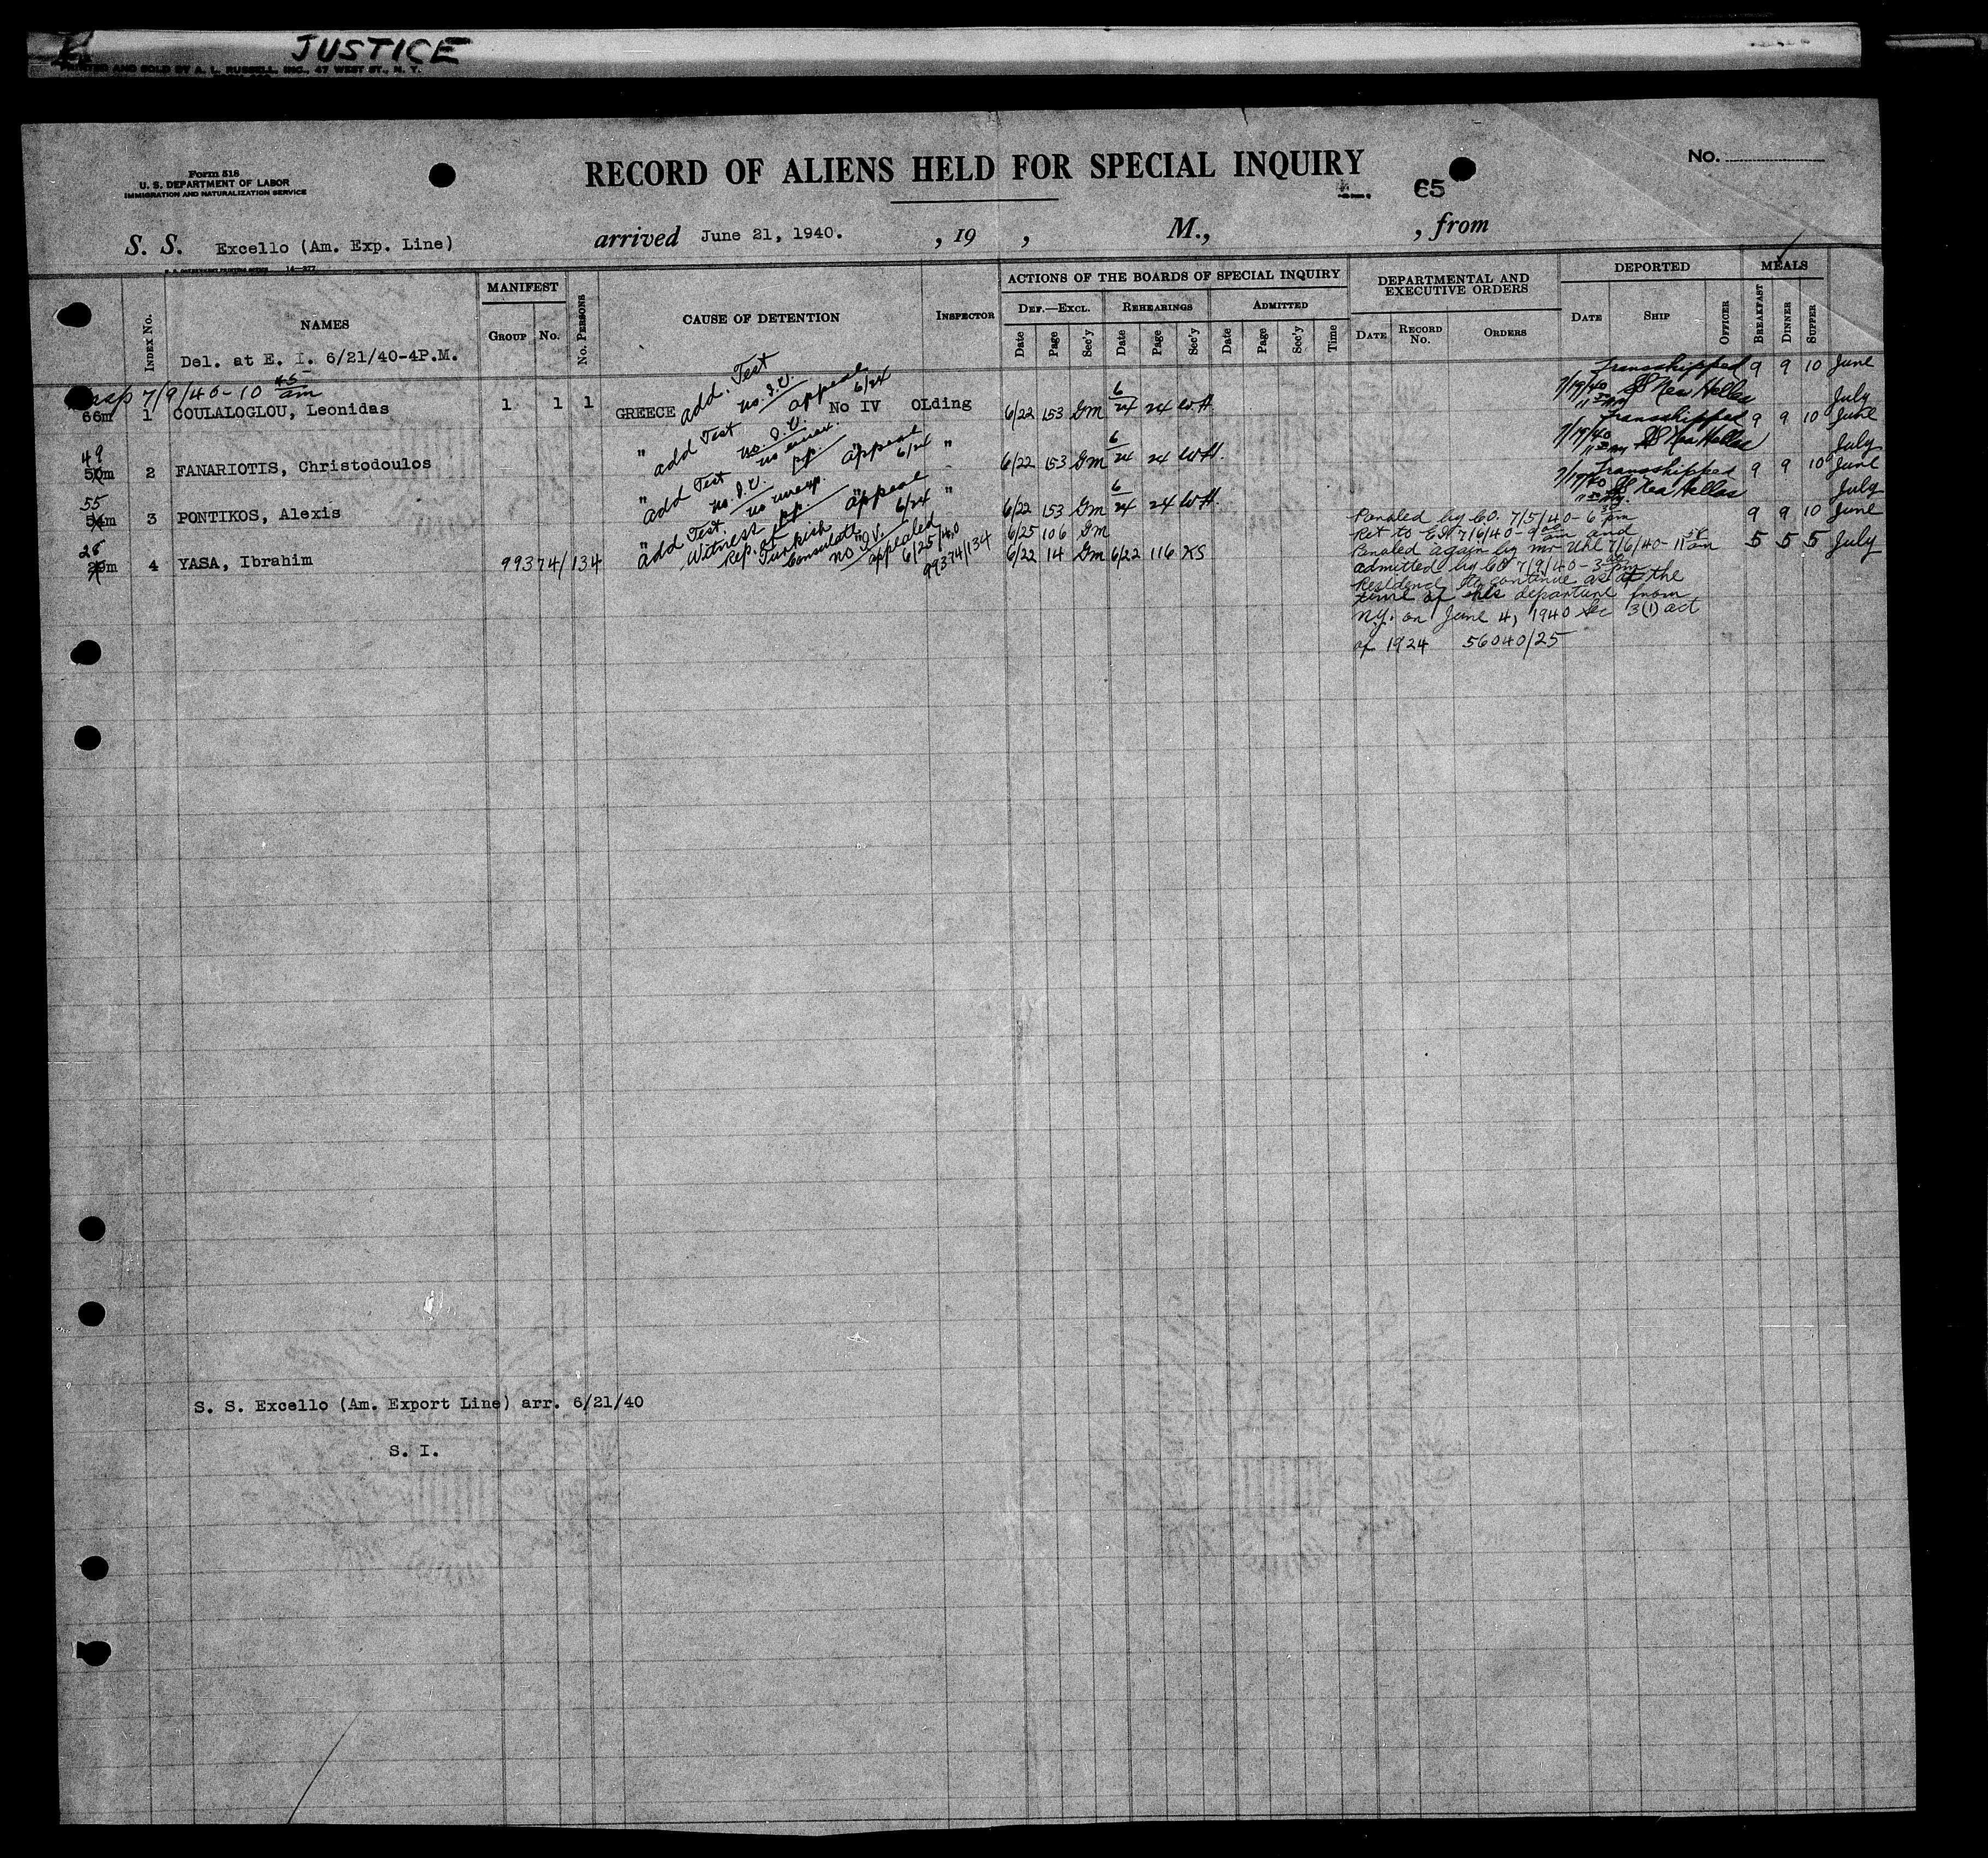 JUSTICE
PRINTED AND SOLD BY A. L. RUSSELL, INC., 47 WEST ST., N. Y.
Form 518
U. S. DEPARTMENT OF LABOR
IMMIGRATION AND NATURALIZATION SERVICE
RECORD OF ALIENS HELD FOR SPECIAL INQUIRY
No.
65
S. S. Excello (Am. Exp. Line) arrived June 21, 1940. , 19 , M., , from
U. S. GOVERNMENT PRINTING OFFICE 14—277
INDEX No. NAMES MANIFEST GROUP No. No. PERSONS CAUSE OF DETENTION INSPECTOR
ACTIONS OF THE BOARDS OF SPECIAL INQUIRY
DEF.—EXCL. REHEARINGS ADMITTED
Date Page Sec'y Date Page Sec'y Date Page Sec'y Time
DEPARTMENTAL AND EXECUTIVE ORDERS
DATE RECORD No. ORDERS
DEPORTED
DATE SHIP OFFICER
MEALS
BREAKFAST DINNER SUPPER
Del. at E. I. 6/21/40-4P.M.
7/9/40-10 45 am
66m 1 COULALOGLOU, Leonidas 1 1 1 GREECE add. Test no. I.V. appeal 6/24 No IV OLding 6/22 153 Gm 6/24 24 W.H. Transshipped 7/19/40 SS Nea Hellas 9 9 10 June
July
49 50m 2 FANARIOTIS, Christodoulos " add Test no. I.V. pp. appeal 6/24 " 6/22 153 Gm 6/24 24 W.H. Transshipped 7/19/40 SS Nea Hellas 9 9 10 June
July
55 54m 3 PONTIKOS, Alexis " add Test no. I.V. no unexp. pp. appeal 6/24 " 6/22 153 Gm 6/24 24 W.H. Transshipped 7/19/40 SS Nea Hellas 9 9 10 June
July
6/25 106 Gm
28 29m 4 YASA, Ibrahim 99374/134 " add Test. Witness Rep. of Turkish Consulate no I.V. appealed 6/25/40 99374/134 6/22 14 Gm 6/22 116 KS 9 9 10 June
5 5 5 July
Paroled by CO. 7/5/40-6 30 pm
Ret to E.I. 7/6/40-9 00 am and
Paroled again by Mr Uhl 7/6/40-11 am
admitted by CO 7/9/40-3 pm
Residence to continue as at the
time of his departure from
N.Y. on June 4, 1940 Sec 3(1) act
of 1924 56040/25
S. S. Excello (Am. Export Line) arr. 6/21/40
S. I.